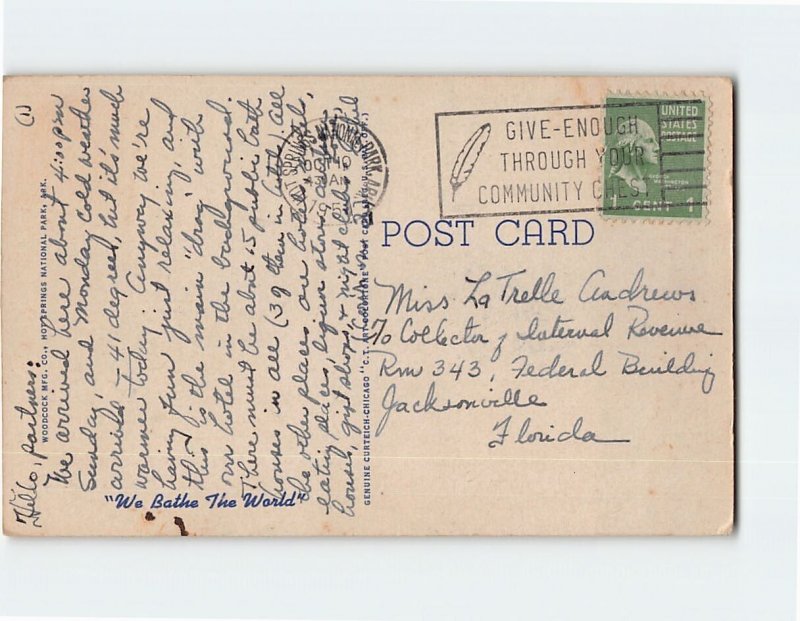 (1)
Hello, partners:
We arrived here about 4:00 pm
Sunday, and Monday cold weather
arrived – 41 degrees, but it's much
warmer today. Anyway we're
having fun just relaxing, and
this is the main "drag" with
our hotel in the background.
There must be about 15 public bath
houses in all (3 of them in hotels) All
the other places are hotels,
eating places, liquor stores, auction
houses, gift shops, & night clubs
"We Bathe The World"
WOODCOCK MFG. CO., HOT SPRINGS NATIONAL PARK, ARK.
GENUINE CURTEICH-CHICAGO "C.T. ART-COLORTONE" POST CARD
HOT SPRINGS NATIONAL PARK
OCT 10
GIVE-ENOUGH
THROUGH YOUR
COMMUNITY CHEST
UNITED
STATES
POSTAGE
WASHINGTON
1 CENT 1
POST CARD
Miss LaTrelle Andrews
℅ Collector of Internal Revenue
Rm 343, Federal Building
Jacksonville
Florida